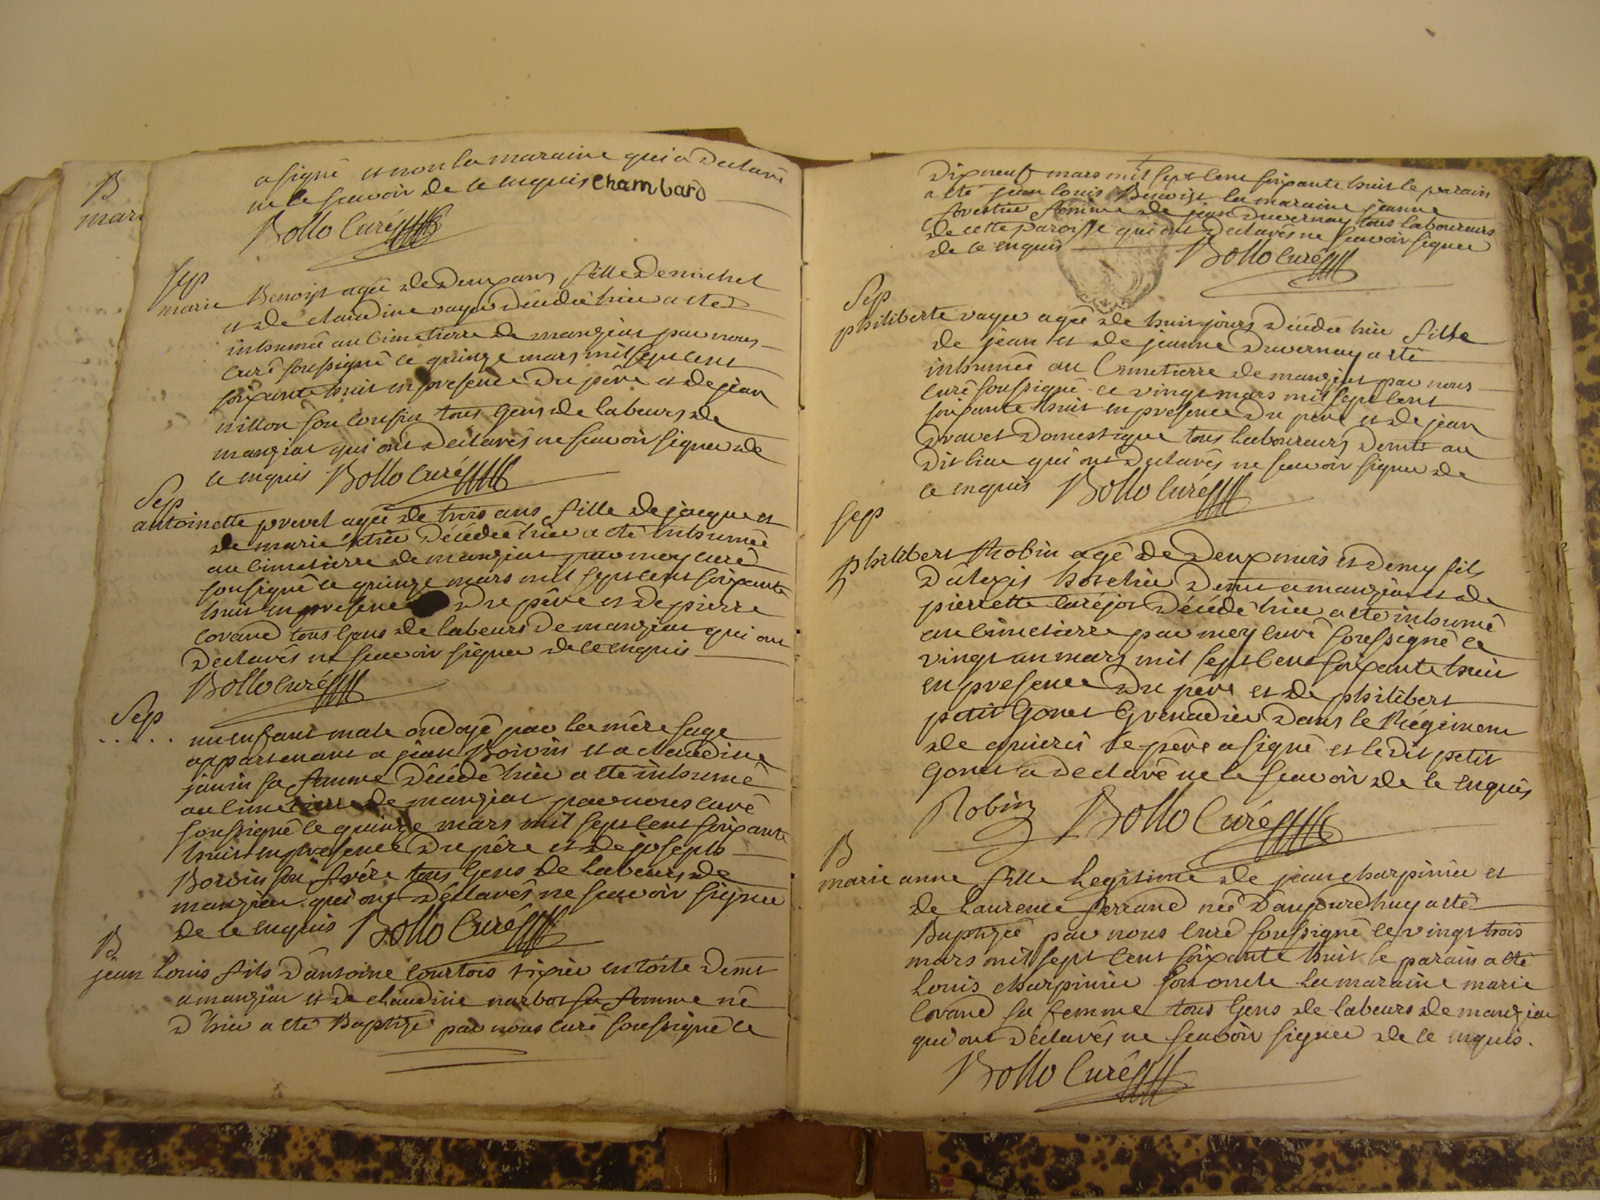 B
mari
a signé et non la maraine qui a declaré
ne le scavoir de ce enquis Chambard
Bollo Curé
Sep
marie Benoist agée de deux ans fille de michel
et de claudine vayer décédée hier a eté
inhumée au cimetierre de manziat par nous
curé soussigné le quinze mars mil sept cent
soixante huit en presence du père et de jean
son cousin tous gens de labeurs de
manziat qui ont declarés ne scavoir signer de
ce enquis Bollo Curé
Sep
antoinette prevel agée de trois ans fille de jacque et
de marie décédée hier a eté inhumée
au cimetierre de manziat par moy curé
sousigné le quinze mars mil sept cent soixante
huit en presence du père et de pierre
Corand tous gens de labeurs de manziat qui ont
declarés ne scavoir signer de ce enquis
Bollo Curé
Sep
un enfant male ondoyé par la mère sage
appartenant a jean Boivin et a claudine
janin sa femme décédé hier a eté inhumé
au cimetierre de manziat par nous curé
soussigné le quinze mars mil sept cent soixante
huit en presence du père et de joseph
Boivin son frére tous gens de labeurs de
manziat qui ont déclarés ne scavoir signer
de ce enquis Bollo Curé
B
jean Louis fils d'antoine Courtois tixier en toile demt
a manziat et de claudine narbot sa femme né
d'hier a eté Baptizé par nous curé soussigné le
dixneuf mars mil sept cent soixante huit le parain
a eté jean louis Benoist la maraine jeanne
femme de jean duvernay tous laboureurs
de cette paroisse qui ont declarés ne scavoir signer
de ce enquis Bollo Curé
Sep
philiberte vayer agée de huit jours décédée hier fille
de jean et de jeanne duvernay a eté
inhumée au Cimetierre de manziat par nous
curé soussigné le vingt mars mil sept cent
soixante huit en presence du père et de jean
dravet domestique tous laboureurs demts au
dit lieu qui ont declarés ne scavoir signer de
ce enquis Bollo Curé
Sep
philibert Robin agé de deux mois et demy fils
d'alexis demt a manziat et de
pierrette Curéjot décédé hier a eté inhumé
au cimetierre par moy curé soussigné le
vingt un mars mil sept cent soixante huit
en presence du père et de philibert
petit Gonet Grenadier dans le Régiment
de le père a signé et le dit petit
Gonet a declaré ne le scavoir de ce enquis
Robin Bollo Curé
B
marie anne fille Legitime de jean charpinier et
de Laurence ferrand née d'aujourdhuy a eté
Baptizée par nous curé soussigné le vingt trois
mars mil sept cent soixante huit le parain a eté
Louis charpinier son oncle la maraine marie
Corand sa femme tous gens de labeurs de manziat
qui ont déclarés ne scavoir signer de ce enquis.
Bollo Curé